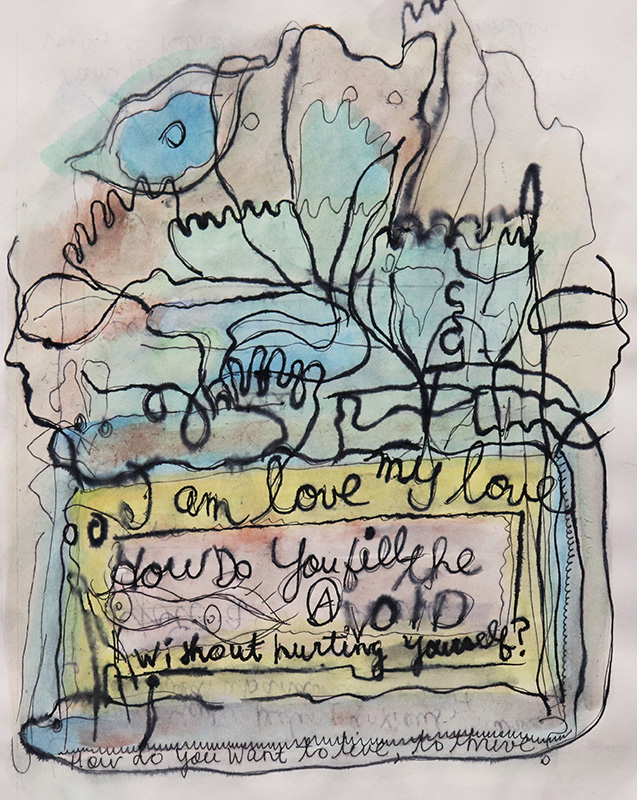 I am love my love
How Do You fill the
A VOID
without hurting yourself?
How do you want to live, to thrive